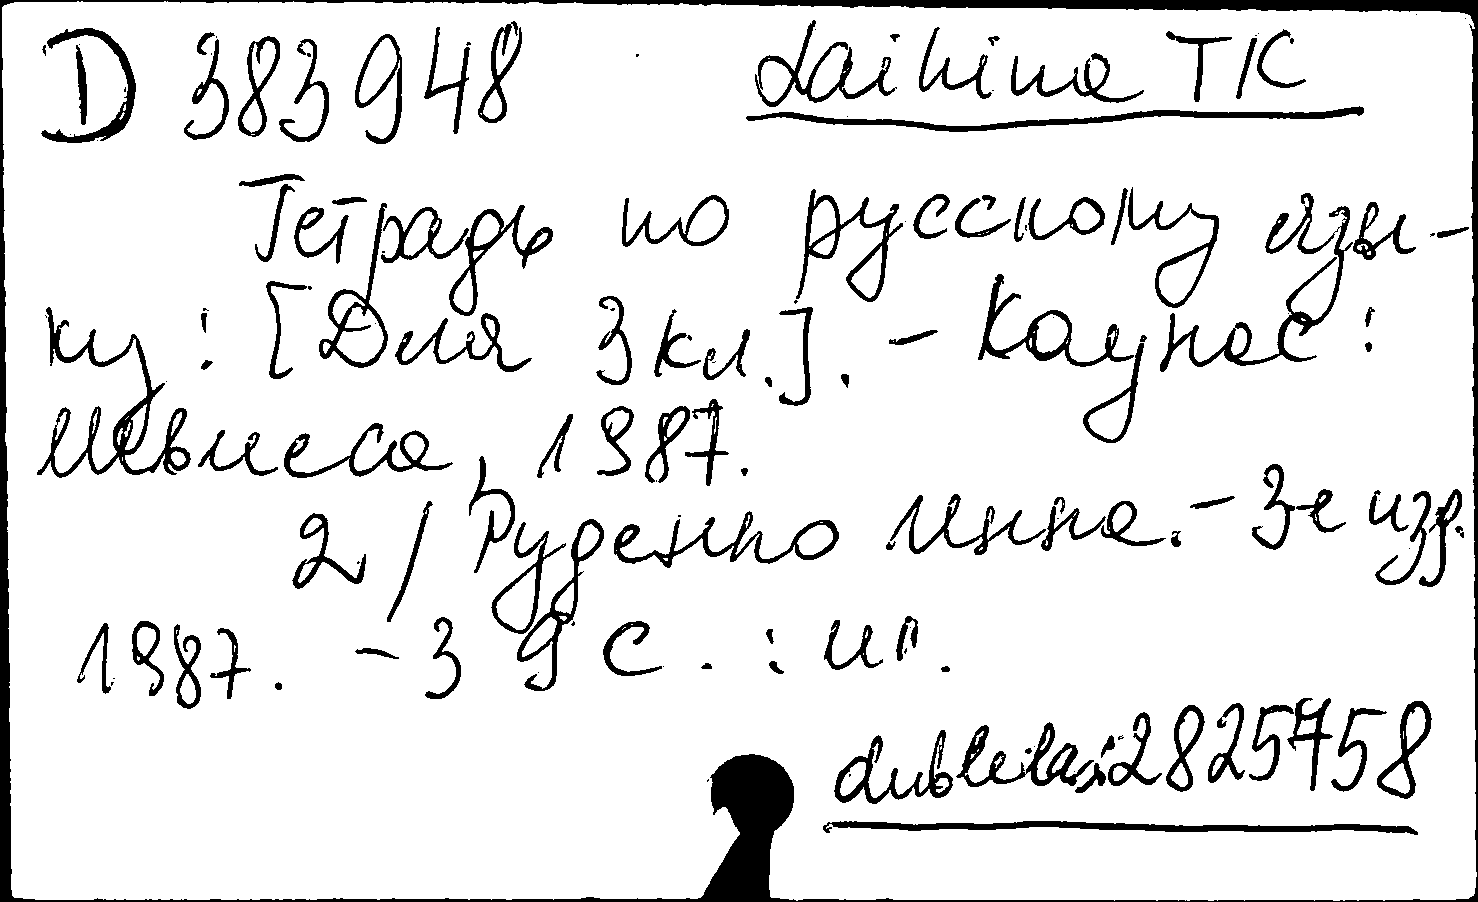 D 383948 Laikina TK
Тетрадь по русскому язы-
ку : [Для 3 кл.]. - Каунас :
Швиеса, 1987.
2 / Руденко Инна. - 3-е изд.
1987. - 39 с. : ил.
dubletas: 2825758